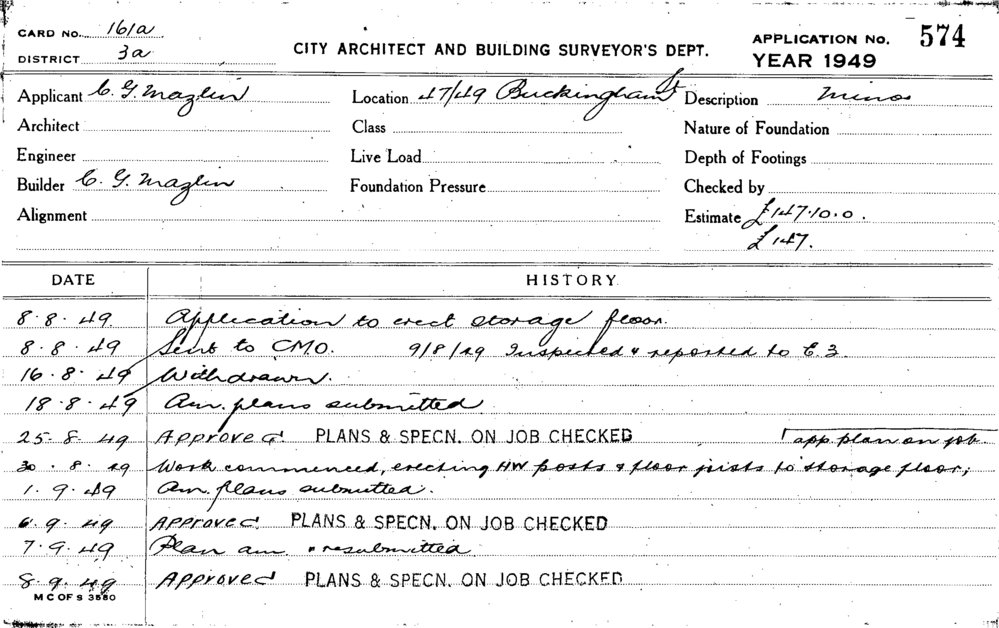 CARD NO. 161a
DISTRICT 3a
CITY ARCHITECT AND BUILDING SURVEYOR'S DEPT.
APPLICATION NO. 574
YEAR 1949
Applicant C. G. Mazlin Location 47/49 Buckingham St Description Minor
Architect Class Nature of Foundation
Engineer Live Load Depth of Footings
Builder C. G. Mazlin Foundation Pressure Checked by
Alignment Estimate £147.10.0.
£147.
DATE HISTORY
8.8.49 Application to erect storage floor.
8.8.49 Sent to CMO. 9/8/49 Inspected & reported to E.3.
16.8.49 Withdrawn.
18.8.49 Am. plans submitted
25.8.49 Approved PLANS & SPECN. ON JOB CHECKED app. plan on job.
30.8.49 Work commenced, erecting HW posts & floor joists to storage floor;
1.9.49 Am. plans submitted.
6.9.49 Approved PLANS & SPECN. ON JOB CHECKED
7.9.49 Plan am. & resubmitted
8.9.49 Approved PLANS & SPECN. ON JOB CHECKED
M C OF S 3580